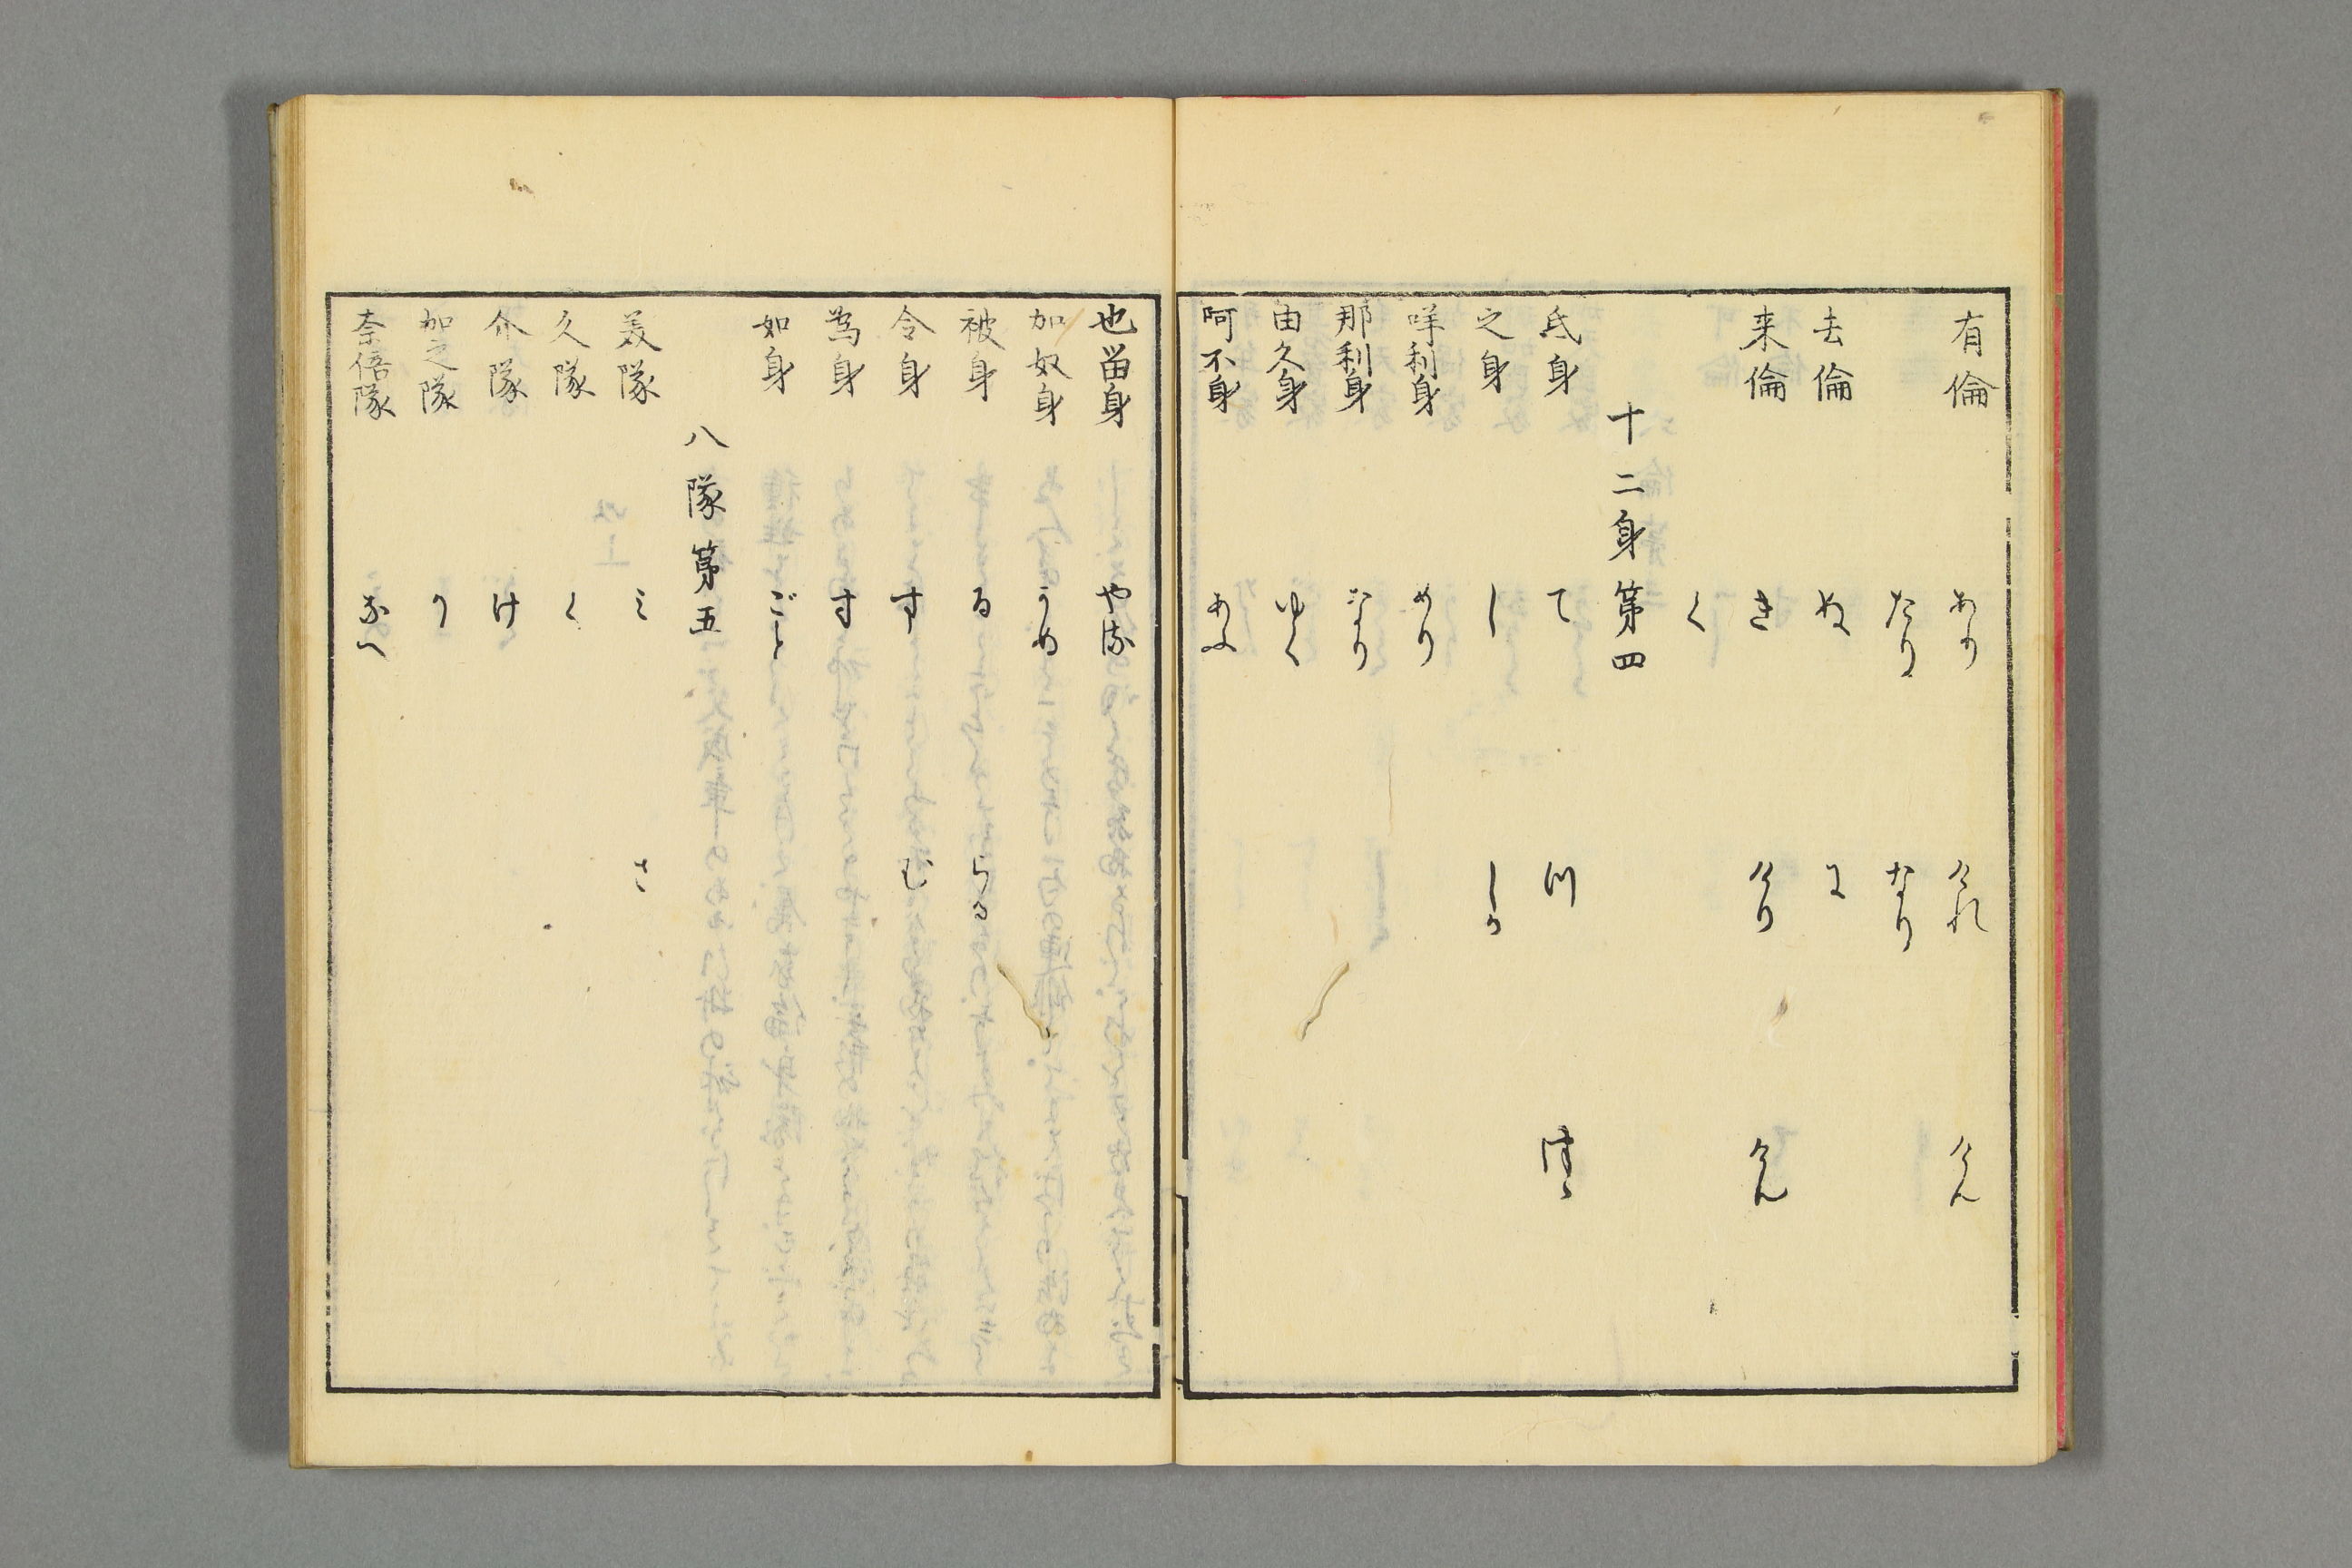 有倫 あり けれ けん
たり なり
去倫 ぬ に
来倫 き けり けん
く
十二身第四
氐身 て つ つゝ
之身 し しか
咩利身 めり
那利身 なり
由久身 ゆく
阿不身 あふ
也留身 やる
加奴身 かぬ
被身 る らる
令身 す む
為身 す
如身 ごと
八隊第五
美隊 み さ
久隊 く
介隊 け
加之隊 り
奈倍隊 なへ